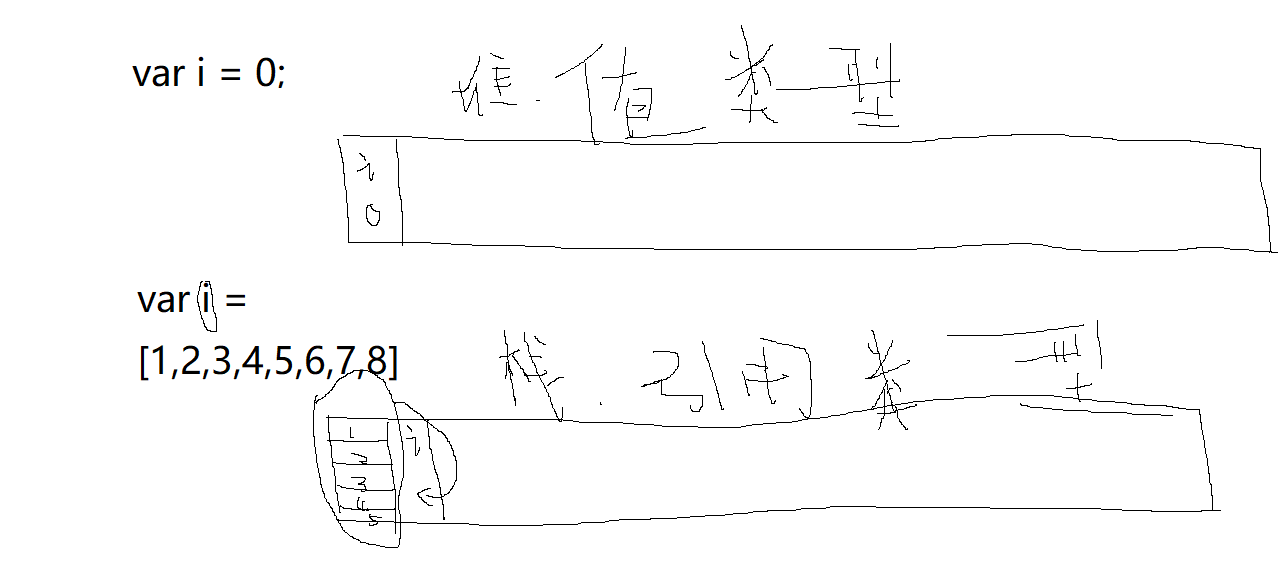 var i = 0;
堆. 值类型
i
0
var i =
[1,2,3,4,5,6,7,8]
栈. 引用类型
1
i
2
3
4
5